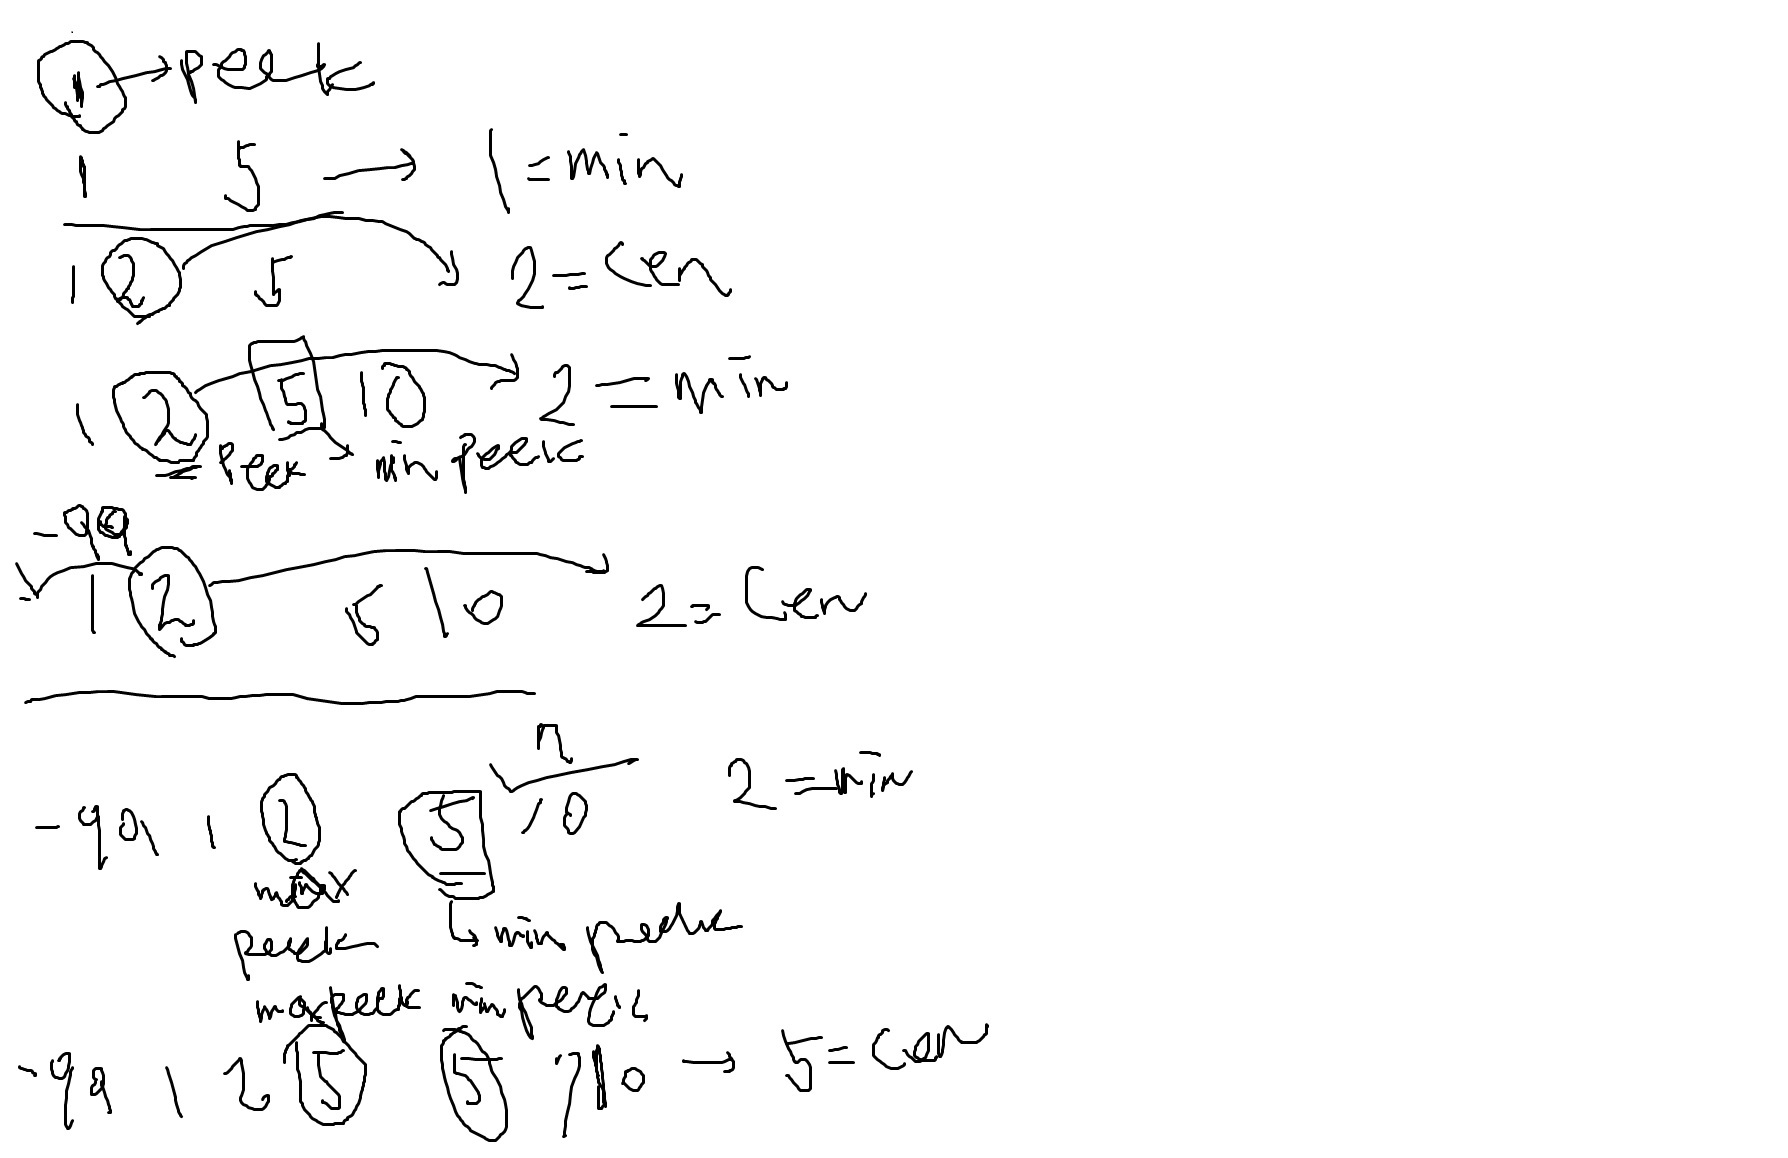 1 → peek
1 5 → 1 = min
1 2 5 2 = Cen
1 2 5 10 2 = min
= Peek min peek
-99
1 2 5 10 2 = Cen
7
-99 1 2 5 10 2 = min
max
peek min peek
max peek min peek
-99 1 2 5 5 7 10 → 5 = Cen